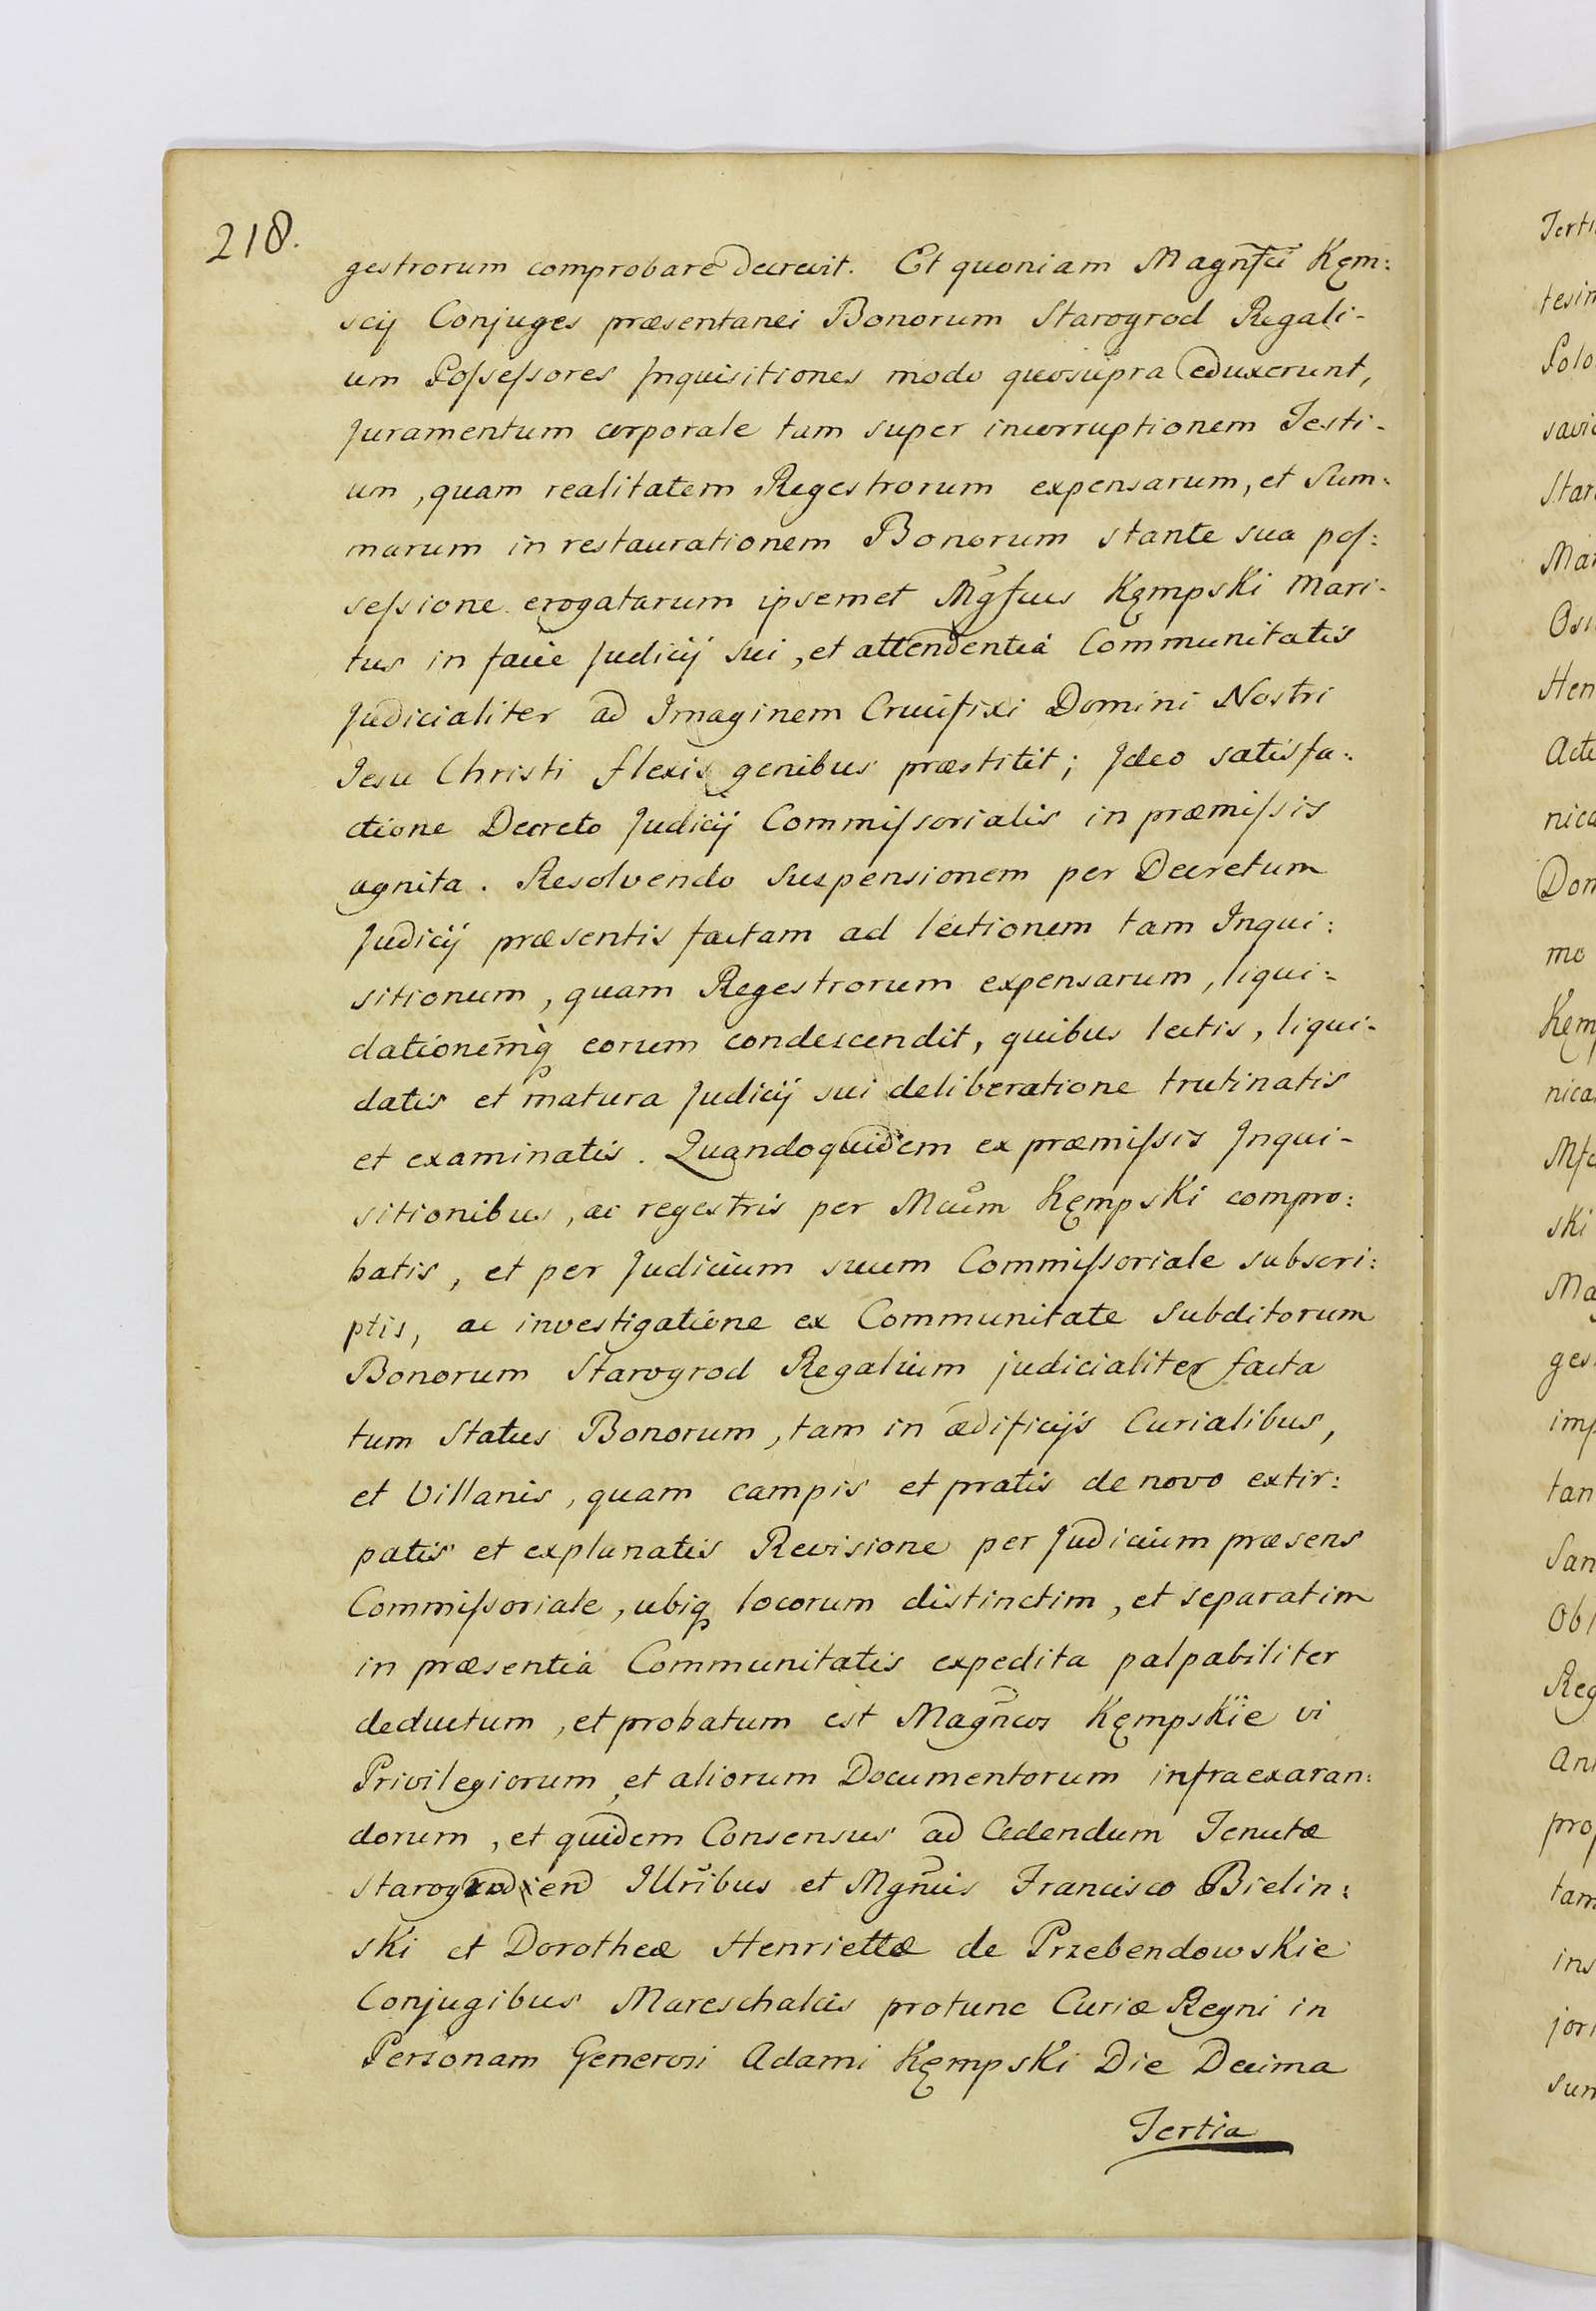 218.
gestrorum comprobare decrevit. Et quoniam Magnfci Kęm:
scij Conjuges præsentanei Bonorum Starogrod Regali-
um Poſseſsores Inquisitiones modo quosupra eduxerunt,
Juramentum corporale tam super incorruptionem Testi-
um, quam realitatem Regestrorum expensarum, et Sum-
marum in restaurationem Bonorum stante sua poſ:
seſsione erogatarum ipsemet Mgfcus KęmpsKi Mari-
tus in facie Judicij sui, et attendentia Communitatis
Judicialiter ad Imaginem Crucifixi Domini Nostri
Jesu Christi flexis genibus præstitit; Ideo satisfa:
ctione Decreto Judicij Commiſsorialis in præmiſsis
agnita. Resolvendo Suspensionem per Decretum
Judicij præsentis factam ad lectionem tam Inqui:
sitionum, quam Regestrorum expensarum, liqui-
dationemq̀ eorum condescendit, quibus lectis, liqui-
datis et matura Judicij sui deliberatione trutinatis
et examinatis. Quandoquidem ex præmiſsis Inqui-
sitionibus, ac regestris per Mcum KęmpsKi compro:
batis, et per Judicium suum Commiſsoriale subscri:
ptis, ac investigatione ex Communitate Subditorum
Bonorum Starogrod Regalium judicialiter facta
tum Status Bonorum, tam in ædificijs Curialibus,
et Villanis, quam campis et pratis de novo extir:
patis et explanatis Revisione per Judicium præsens
Commiſsoriale, ubiq locorum distinctim, et separatim
in præsentia Communitatis expedita palpabiliter
deductum, et probatum est Magncos KęmpsKie vi
Privilegiorum, et aliorum Documentorum infraexaran:
dorum, et quidem Consensus ad Cedendum Tenutæ
Starogrodien Illribus et Mgncis Francisco Bielin:
sKi et Dorotheæ Henriettæ de PrzebendowsKie
Conjugibus Mareschalcis protunc Curiæ Regni in
Personam Generosi Adami KęmpsKi Die Decima
Tertia